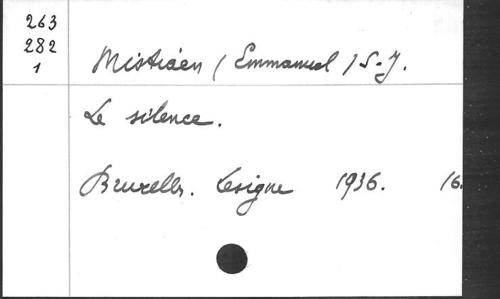 263
282
1
Mistiaen (Emmanuel) S.J.
Le silence.
Bruxelles. Lesigne 1936. 16.